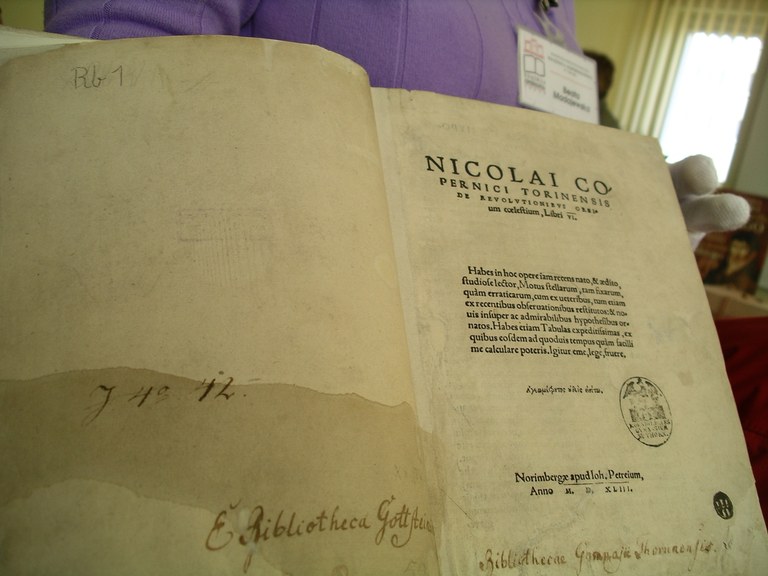 Rb 1
J 4º 42.
E Bibliotheca Gottstein
NICOLAI CO
PERNICI TORINENSIS
DE REVOLVTIONIBVS ORBI-
um cœlestium, Libri VI.
Habes in hoc opere iam recens nato, & ædito,
studiose lector, Motus stellarum, tam fixarum,
quàm erraticarum, cum ex ueteribus, tum etiam
ex recentibus obseruationibus restitutos: & no-
uis insuper ac admirabilibus hypothesibus or-
natos. Habes etiam Tabulas expeditissimas, ex
quibus eosdem ad quoduis tempus quàm facilli
me calculare poteris. Igitur eme, lege, fruere.
Ἀγεωμέτρητος οὐδεὶς εἰσίτω.
Norimbergæ apud Ioh. Petreium,
Anno M. D. XLIII.
Bibliothecae Gymnasii Thorunensis.